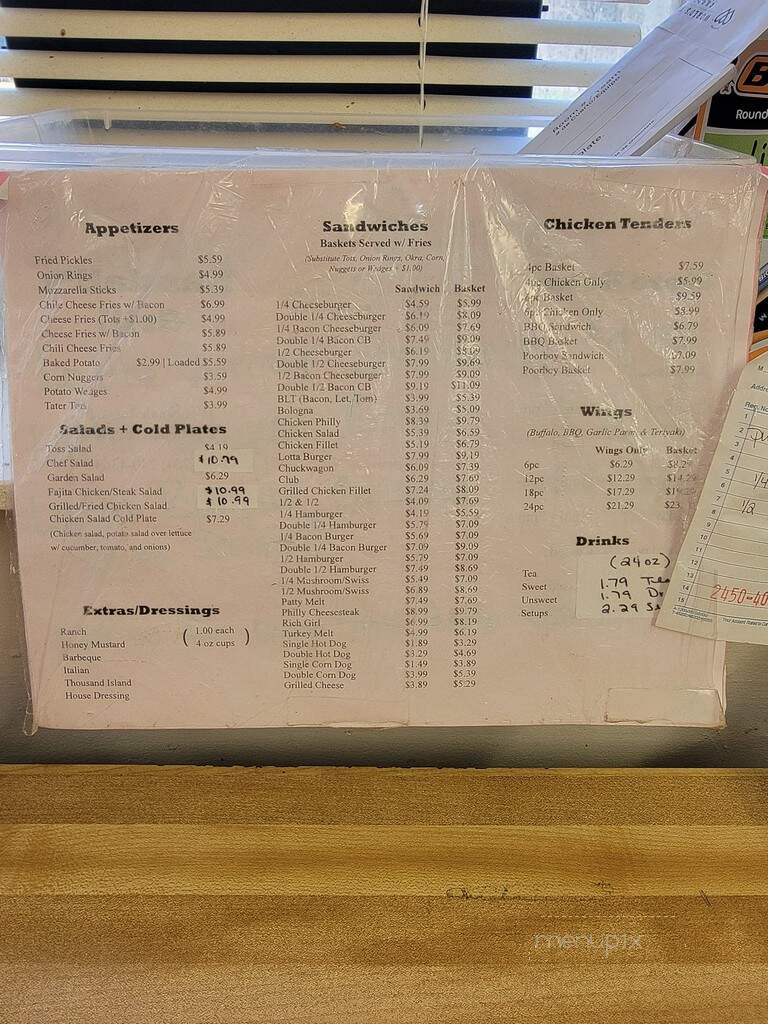 Appetizers
Fried Pickles $5.59
Onion Rings $4.99
Mozzarella Sticks $5.39
Chile Cheese Fries w/ Bacon $6.99
Cheese Fries (Tots +$1.00) $4.99
Cheese Fries w/ Bacon $5.89
Chili Cheese Fries $5.89
Baked Potato $2.99 | Loaded $5.59
Corn Nuggets $3.59
Potato Wedges $4.99
Tater Tots $3.99
Salads + Cold Plates
Toss Salad $4.19
Chef Salad $10.99
Garden Salad $6.29
Fajita Chicken/Steak Salad $10.99
Grilled/Fried Chicken Salad $10.99
Chicken Salad Cold Plate $7.29
(Chicken salad, potato salad over lettuce
w/ cucumber, tomato, and onions)
Extras/Dressings
Ranch (1.00 each
Honey Mustard 4 oz cups)
Barbeque
Italian
Thousand Island
House Dressing
Sandwiches
Baskets Served w/ Fries
(Substitute Tots, Onion Rings, Okra, Corn
Nuggets or Wedges + $1.00)
Sandwich Basket
1/4 Cheeseburger $4.59 $5.99
Double 1/4 Cheeseburger $6.19 $8.09
1/4 Bacon Cheeseburger $6.09 $7.69
Double 1/4 Bacon CB $7.49 $9.09
1/2 Cheeseburger $6.19
Double 1/2 Cheeseburger $7.99 $9.69
1/2 Bacon Cheeseburger $7.99 $9.09
Double 1/2 Bacon CB $9.19 $11.09
BLT (Bacon, Let, Tom) $3.99 $5.39
Bologna $3.69 $5.09
Chicken Philly $8.39 $9.79
Chicken Salad $5.39 $6.59
Chicken Fillet $5.19 $6.79
Lotta Burger $7.99 $9.19
Chuckwagon $6.09 $7.39
Club $6.29 $7.69
Grilled Chicken Fillet $7.24 $8.09
1/2 & 1/2 $4.09 $7.69
1/4 Hamburger $4.19 $5.59
Double 1/4 Hamburger $5.79 $7.09
1/4 Bacon Burger $5.69 $7.09
Double 1/4 Bacon Burger $7.09 $9.09
1/2 Hamburger $5.79 $7.09
Double 1/2 Hamburger $7.49 $8.69
1/4 Mushroom/Swiss $5.49 $7.09
1/2 Mushroom/Swiss $6.89 $8.69
Patty Melt $7.49 $7.69
Philly Cheesesteak $8.99 $9.79
Rich Girl $6.99 $8.19
Turkey Melt $4.99 $6.19
Single Hot Dog $1.89 $3.29
Double Hot Dog $3.29 $4.69
Single Corn Dog $1.49 $3.89
Double Corn Dog $3.99 $5.39
Grilled Cheese $3.89 $5.29
Chicken Tenders
4pc Basket $7.59
4pc Chicken Only $5.99
Basket $9.59
Chicken Only $8.99
BBQ Sandwich $6.79
BBQ Basket $7.99
Poorboy Sandwich $7.09
Poorboy Basket $7.99
Wings
(Buffalo, BBQ, Garlic Parm, & Teriyaki)
Wings Only Basket
6pc $6.29 $8.29
12pc $12.29 $14.29
18pc $17.29
24pc $21.29 $23.
Drinks
(24oz)
Tea 1.79 Tea
Sweet
Unsweet 1.79 Dr
Setups 2.29
2450-40
1/4
1/2
Round
menupix